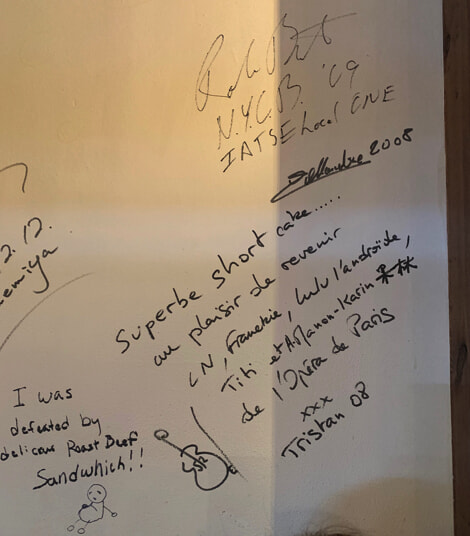 N.Y.C.B. '09
IATSE Local ONE
2008
Superbe short cake.....
au plaisir de revenir
LN, Franckie, Lulu l'androïde,
Titi et Manon-Karin
de l'Opéra de Paris
xxx
Tristan 08
2.12.
emiya
I was
defeated by
delicous Roast Beef
Sandwhich!!